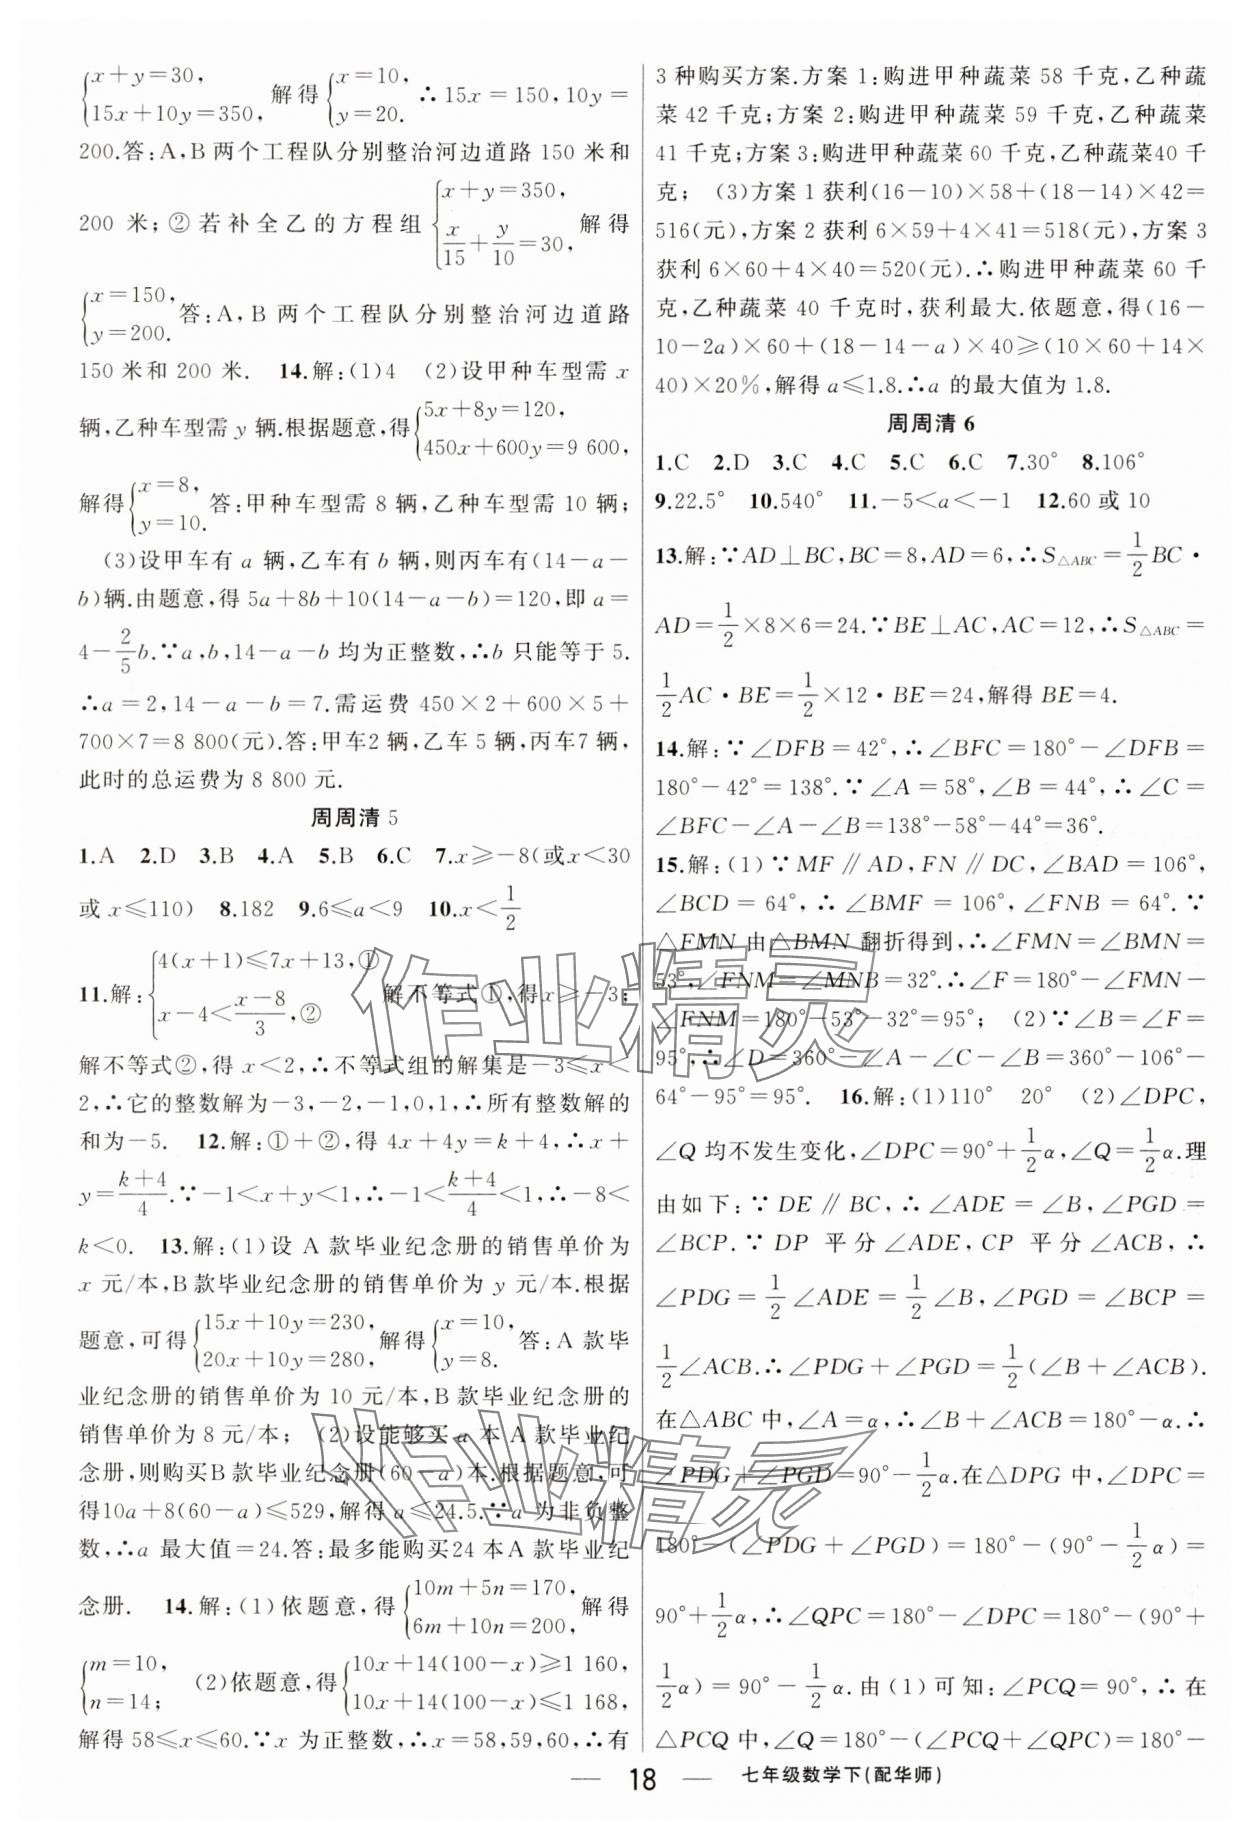 {x+y=30, 15x+10y=350, 解得{x=10, y=20. ∴15x=150,10y=
200.答:A,B两个工程队分别整治河边道路150米和
200米;②若补全乙的方程组{x+y=350, x/15+y/10=30, 解得
{x=150, y=200. 答:A,B两个工程队分别整治河边道路
150米和200米. 14.解:(1)4 (2)设甲种车型需x
辆,乙种车型需y辆.根据题意,得{5x+8y=120, 450x+600y=9 600,
解得{x=8, y=10. 答:甲种车型需8辆,乙种车型需10辆;
(3)设甲车有a辆,乙车有b辆,则丙车有(14-a-
b)辆.由题意,得5a+8b+10(14-a-b)=120,即a=
4-2/5b.∵a,b,14-a-b均为正整数,∴b只能等于5.
∴a=2,14-a-b=7.需运费450×2+600×5+
700×7=8 800(元).答:甲车2辆,乙车5辆,丙车7辆,
此时的总运费为8 800元.
周周清5
1.A 2.D 3.B 4.A 5.B 6.C 7.x≥-8(或x<30
或x≤110) 8.182 9.6≤a<9 10.x<1/2
11.解:{4(x+1)≤7x+13,① x-4<(x-8)/3,② 解不等式①,得x≥-3;
解不等式②,得x<2,∴不等式组的解集是-3≤x<
2,∴它的整数解为-3,-2,-1,0,1,∴所有整数解的
和为-5. 12.解:①+②,得4x+4y=k+4,∴x+
y=(k+4)/4.∵-1<x+y<1,∴-1<(k+4)/4<1,∴-8<
k<0. 13.解:(1)设A款毕业纪念册的销售单价为
x元/本,B款毕业纪念册的销售单价为y元/本.根据
题意,可得{15x+10y=230, 20x+10y=280, 解得{x=10, y=8. 答:A款毕
业纪念册的销售单价为10元/本,B款毕业纪念册的
销售单价为8元/本; (2)设能够买a本A款毕业纪
念册,则购买B款毕业纪念册(60-a)本.根据题意,可
得10a+8(60-a)≤529,解得a≤24.5.∵a为非负整
数,∴a最大值=24.答:最多能购买24本A款毕业纪
念册. 14.解:(1)依题意,得{10m+5n=170, 6m+10n=200, 解得
{m=10, n=14; (2)依题意,得{10x+14(100-x)≥1 160, 10x+14(100-x)≤1 168,
解得58≤x≤60.∵x为正整数,∴x=58,59,60,∴有
3种购买方案.方案1:购进甲种蔬菜58千克,乙种蔬
菜42千克;方案2:购进甲种蔬菜59千克,乙种蔬菜
41千克;方案3:购进甲种蔬菜60千克,乙种蔬菜40千
克; (3)方案1获利(16-10)×58+(18-14)×42=
516(元),方案2获利6×59+4×41=518(元),方案3
获利6×60+4×40=520(元).∴购进甲种蔬菜60千
克,乙种蔬菜40千克时,获利最大.依题意,得(16-
10-2a)×60+(18-14-a)×40≥(10×60+14×
40)×20%,解得a≤1.8.∴a的最大值为1.8.
周周清6
1.C 2.D 3.C 4.C 5.C 6.C 7.30° 8.106°
9.22.5° 10.540° 11.-5<a<-1 12.60或10
13.解:∵AD⊥BC,BC=8,AD=6,∴S△ABC=1/2BC·
AD=1/2×8×6=24.∵BE⊥AC,AC=12,∴S△ABC=
1/2AC·BE=1/2×12·BE=24,解得BE=4.
14.解:∵∠DFB=42°,∴∠BFC=180°-∠DFB=
180°-42°=138°.∵∠A=58°,∠B=44°,∴∠C=
∠BFC-∠A-∠B=138°-58°-44°=36°.
15.解:(1)∵MF∥AD,FN∥DC,∠BAD=106°,
∠BCD=64°,∴∠BMF=106°,∠FNB=64°.∵
△FMN由△BMN翻折得到,∴∠FMN=∠BMN=
53°,∠FNM=∠MNB=32°.∴∠F=180°-∠FMN-
∠FNM=180°-53°-32°=95°; (2)∵∠B=∠F=
95°,∴∠D=360°-∠A-∠C-∠B=360°-106°-
64°-95°=95°. 16.解:(1)110° 20° (2)∠DPC,
∠Q均不发生变化,∠DPC=90°+1/2α,∠Q=1/2α.理
由如下:∵DE∥BC,∴∠ADE=∠B,∠PGD=
∠BCP.∵DP平分∠ADE,CP平分∠ACB,∴
∠PDG=1/2∠ADE=1/2∠B,∠PGD=∠BCP=
1/2∠ACB.∴∠PDG+∠PGD=1/2(∠B+∠ACB).
在△ABC中,∠A=α,∴∠B+∠ACB=180°-α.∴
∠PDG+∠PGD=90°-1/2α.在△DPG中,∠DPC=
180°-(∠PDG+∠PGD)=180°-(90°-1/2α)=
90°+1/2α,∴∠QPC=180°-∠DPC=180°-(90°+
1/2α)=90°-1/2α.由(1)可知:∠PCQ=90°,∴在
△PCQ中,∠Q=180°-(∠PCQ+∠QPC)=180°-
18 七年级数学下(配华师)
作业精灵
作业精灵